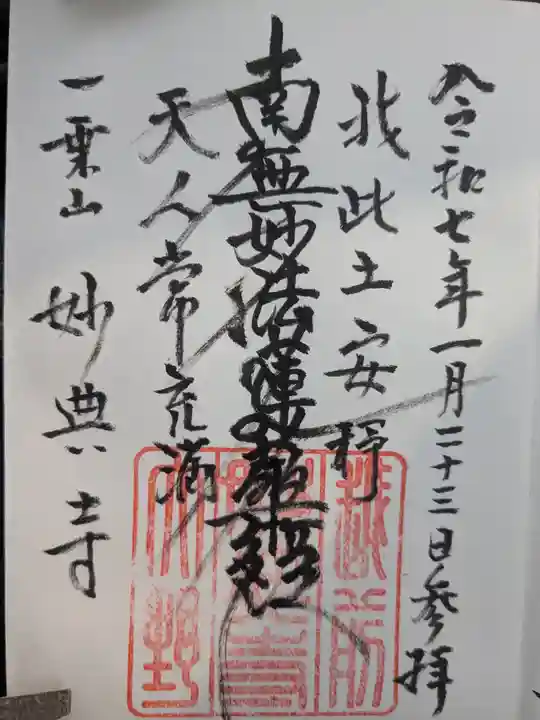 令和七年一月二十三日参拝
我此土安穏
南無妙法蓮華経
天人常充満
一乗山
妙典寺